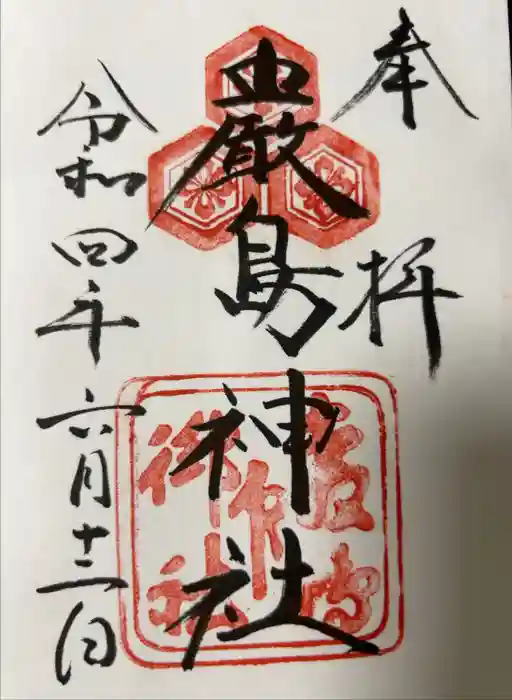 奉拝
嚴島神社
令和四年六月十二日